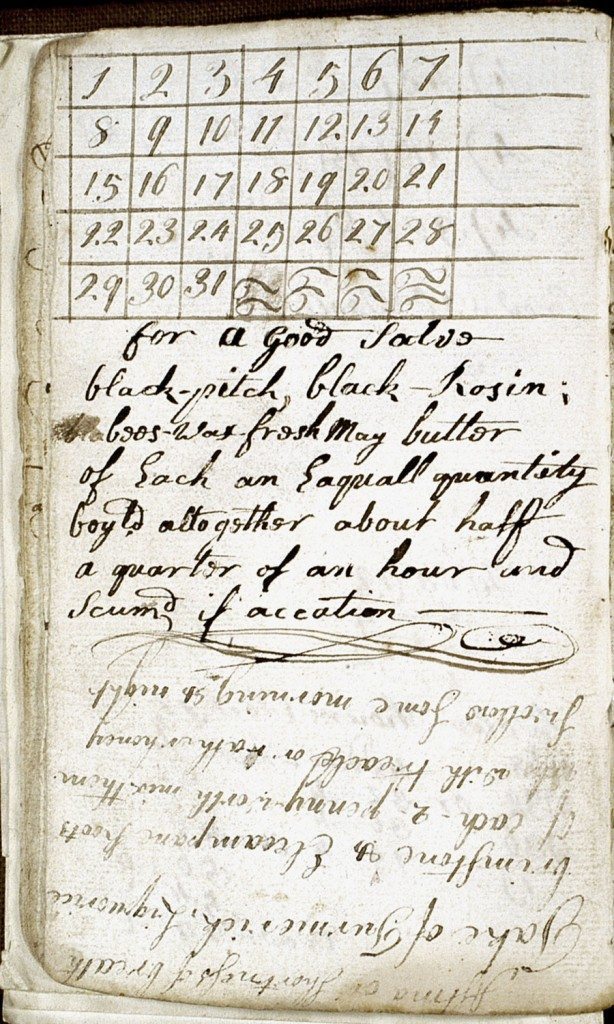 1 2 3 4 5 6 7
8 9 10 11 12 13 14
15 16 17 18 19 20 21
22 23 24 25 26 27 28
29 30 31
for a Good Salve
black-pitch, black-Rosin;
bees-wax fresh May butter
of Each an Eaquall quantity
boyld altogether about half
a quarter of an hour and
Scumd if accation
shortness of breath
Take of Turmerick, Liquorice
brimstone & Elecampane Roots
of each 2 penny worth mix them
with treacle or rather honey
Some morning & night